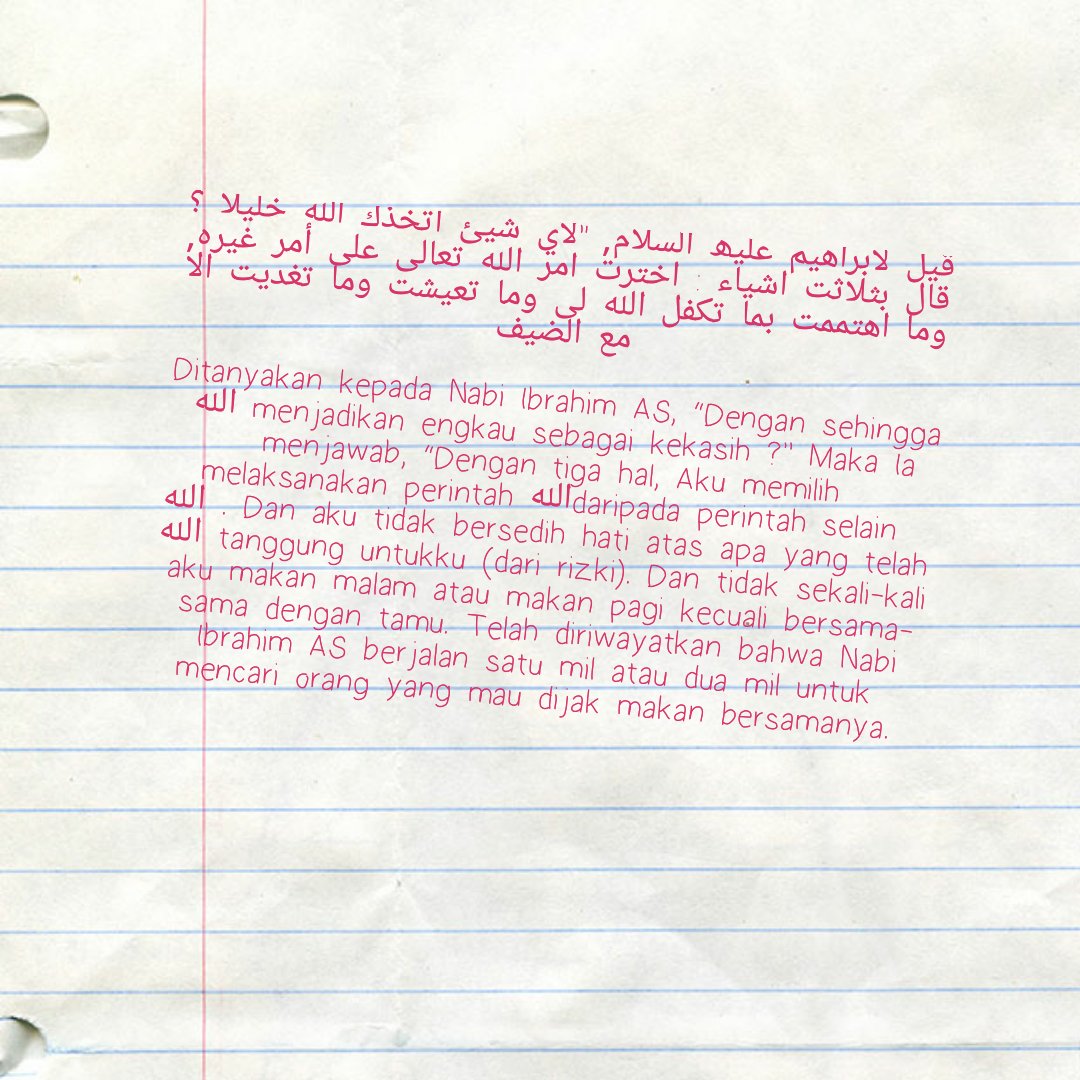 قيل لابراهيم عليه السلام, "لاي شيئ اتخذك الله خليلا ؟
قال بثلاثت اشياء : اخترت امر الله تعالى على أمر غيره,
وما اهتممت بما تكفل الله لى وما تعيشت وما تغديت الا
مع الضيف
Ditanyakan kepada Nabi Ibrahim AS, "Dengan sehingga
الله menjadikan engkau sebagai kekasih ?" Maka Ia
menjawab, "Dengan tiga hal, Aku memilih
melaksanakan perintah اللهdaripada perintah selain
الله . Dan aku tidak bersedih hati atas apa yang telah
الله tanggung untukku (dari rizki). Dan tidak sekali-kali
aku makan malam atau makan pagi kecuali bersama-
sama dengan tamu. Telah diriwayatkan bahwa Nabi
Ibrahim AS berjalan satu mil atau dua mil untuk
mencari orang yang mau dijak makan bersamanya.